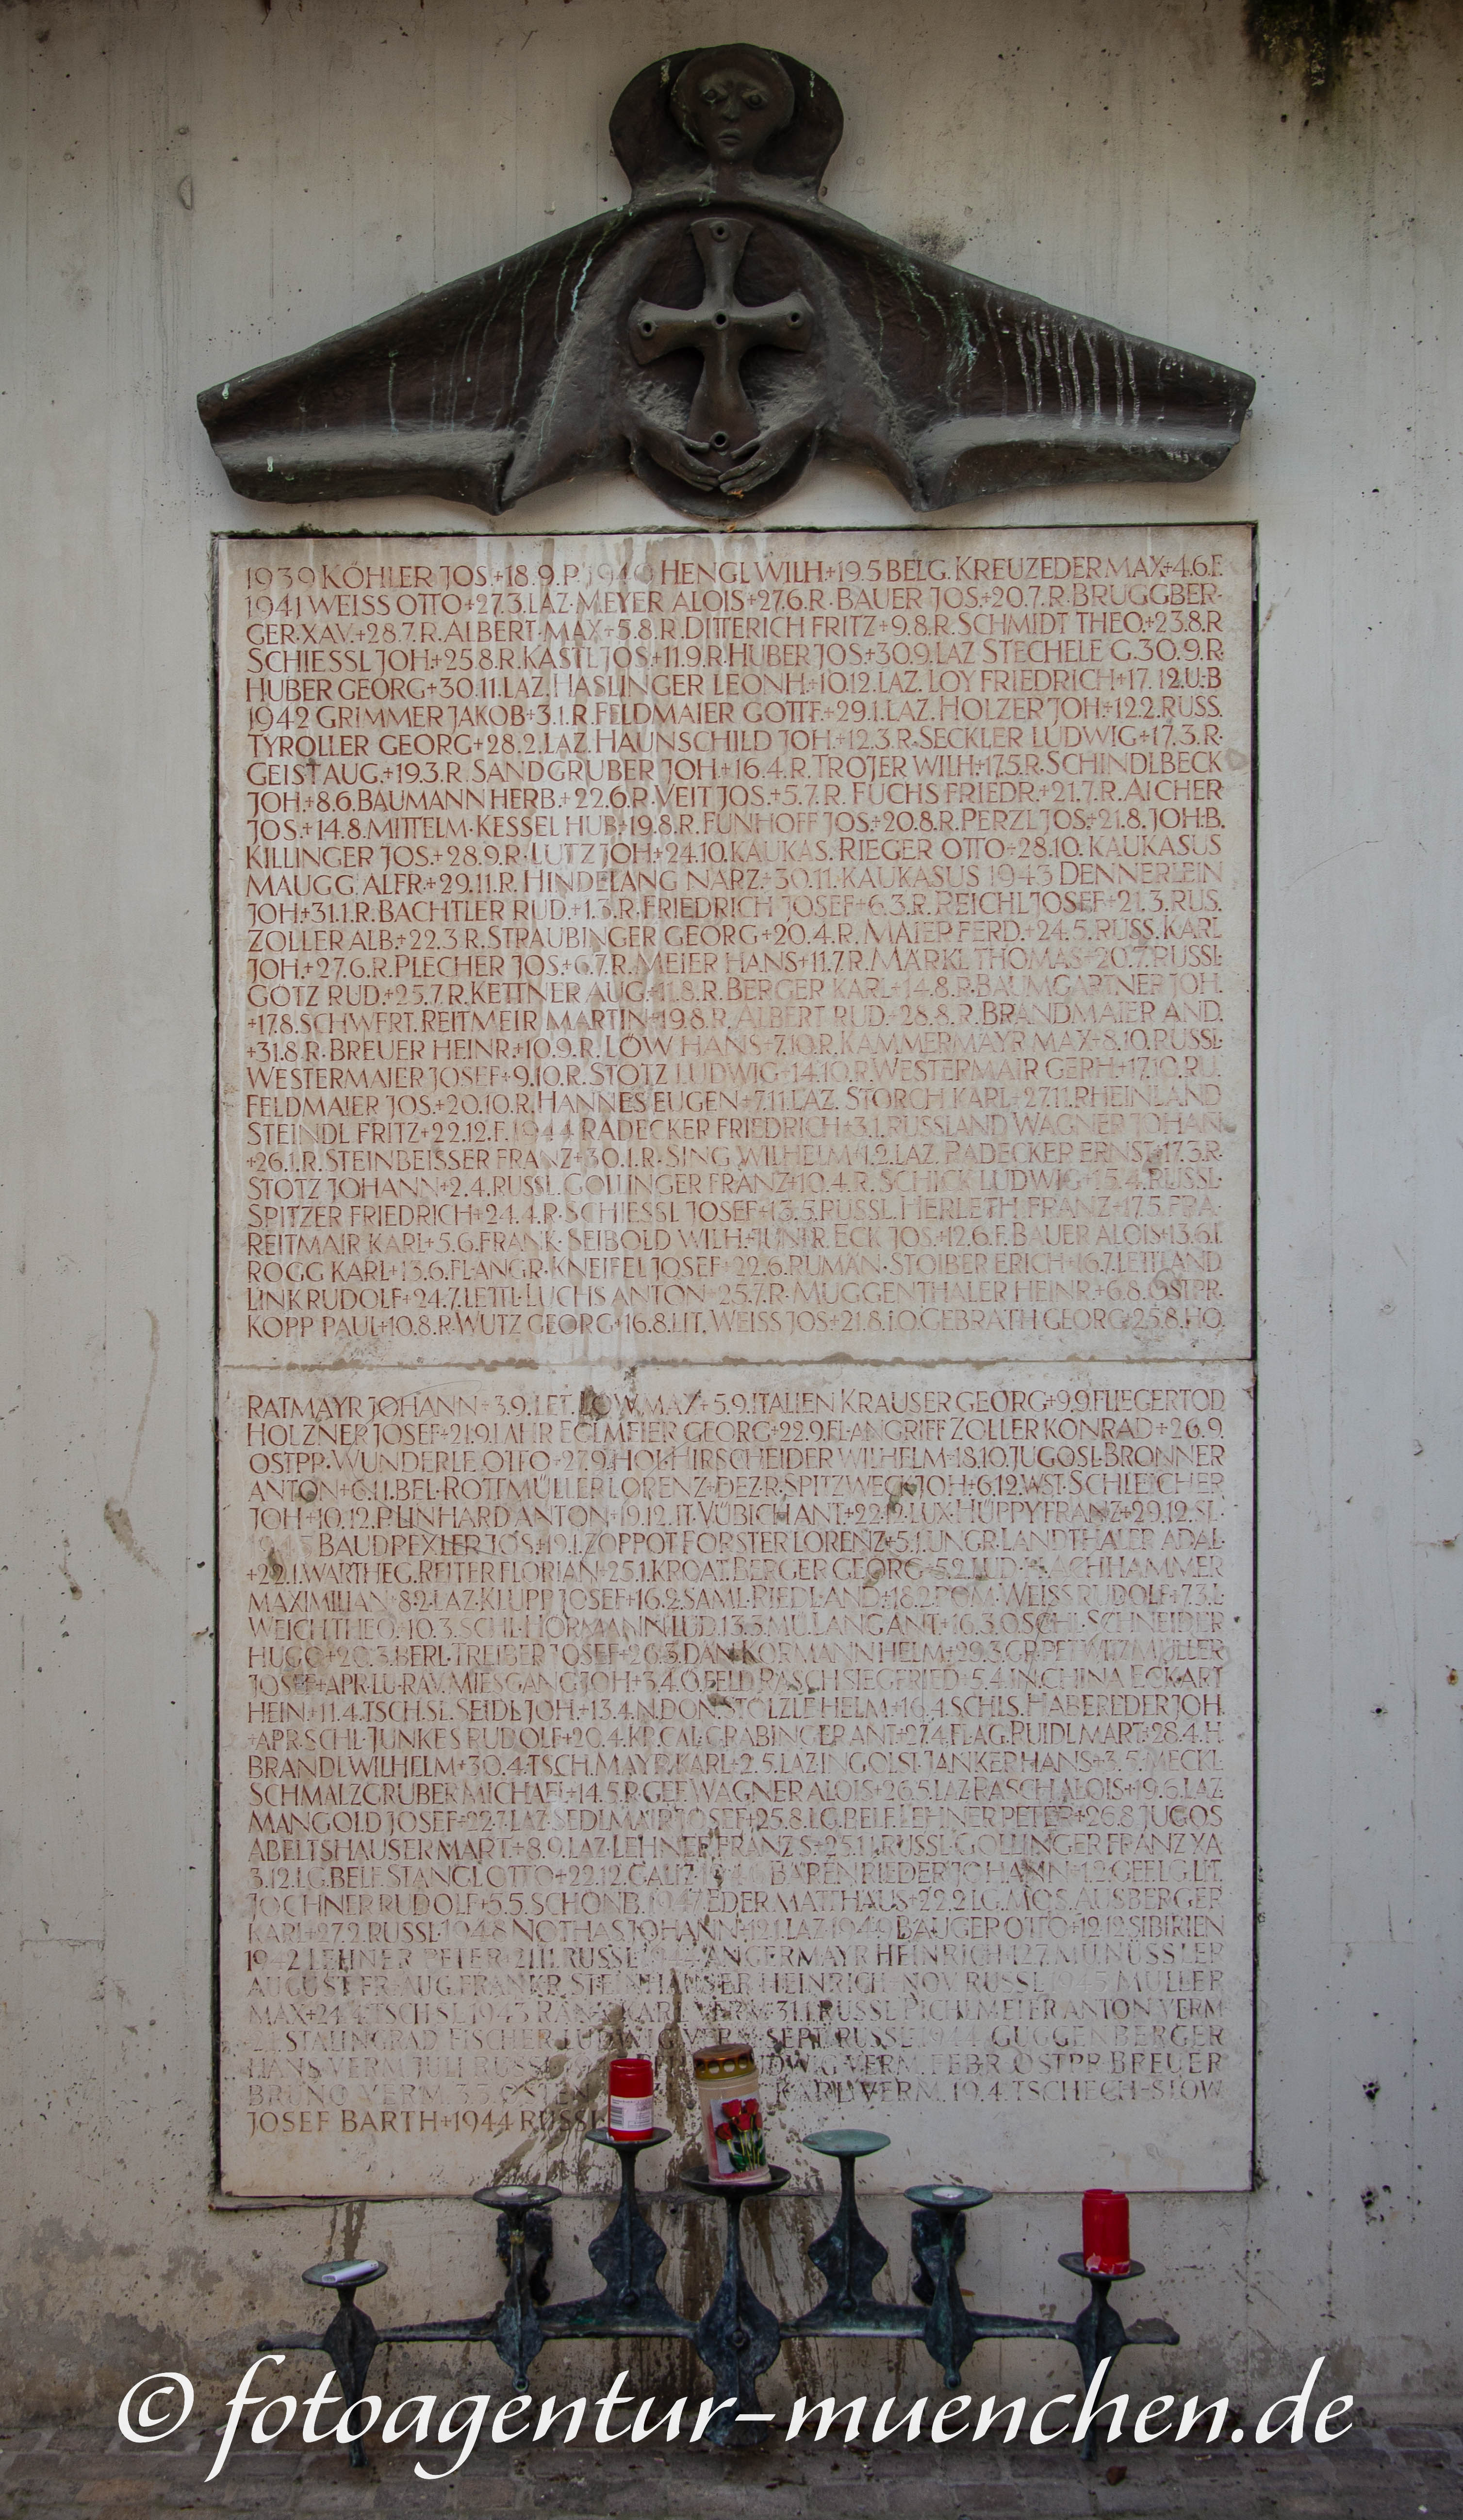 1939 KÖHLER JOS.+18.9.P. 1940 HENGL WILH.+19.5 BELG. KREUZEDER MAX+4.6.F.
1941 WEISS OTTO+27.3.LAZ·MEYER ALOIS+27.6.R·BAUER JOS.+20.7.R·BRUGGBER-
GER·XAV.+28.7.R.ALBERT·MAX+5.8.R.DITTERICH FRITZ+9.8.R.SCHMIDT THEO.+23.8.R
SCHIESSL JOH.+25.8.R.KASTL JOS.+11.9.R·HUBER JOS.+30.9.LAZ STECHELE G.30.9.R.
HUBER GEORG+30.11.LAZ.HASLINGER LEONH.+10.12.LAZ. LOY FRIEDRICH+17.12.U.B
1942 GRIMMER JAKOB+3.1.R.FELDMAIER GOTTF.+29.1.LAZ. HOLZER JOH.+12.2.RUSS.
TYROLLER GEORG+28.2.LAZ.HAUNSCHILD JOH.+12.3.R·SECKLER LUDWIG+17.3.R·
GEIST AUG.+19.3.R.SANDGRUBER JOH.+16.4.R.TROJER WILH.+17.5.R·SCHINDLBECK
JOH.+8.6.BAUMANN HERB.+22.6.R·VEIT JOS.+5.7.R. FUCHS FRIEDR.+21.7.R.AICHER
JOS.+14.8.MITTELM·KESSEL HUB.+19.8.R.FUNHOFF JOS.+20.8.R.PERZL JOS.+21.8.JOH.B.
KILLINGER JOS.+28.9.R·LUTZ JOH.+24.10.KAUKAS. RIEGER OTTO+28.10.KAUKASUS
MAUGG ALFR.+29.11.R. HINDELANG NARZ.+30.11.KAUKASUS 1943 DENNERLEIN
JOH.+31.1.R.BACHTLER RUD.+1.3.R.FRIEDRICH JOSEF+6.3.R.REICHL JOSEF+21.3.RUS.
ZOLLER ALB.+22.3 R.STRAUBINGER GEORG+20.4.R. MAIER FERD.+24.5.RUSS.KARL
JOH.+27.6.R.PLECHER JOS.+6.7.R.MEIER HANS+11.7.R.MÄRKL THOMAS+20.7.RUSSL·
GÖTZ RUD.+25.7.R.KETTNER AUG.+11.8.R.BERGER KARL+14.8.R·BAUMGARTNER JOH.
+17.8.SCHWERT.REITMEIR MARTIN+19.8.R.ALBERT RUD.+28.8.R.BRANDMAIER AND.
+31.8.R·BREUER HEINR.+10.9.R.LÖW HANS+7.10.R.KAMMERMAYR MAX+8.10.RUSSL·
WESTERMAIER JOSEF+9.10.R.STOTZ LUDWIG+14.10.R.WESTERMAIR GEPH+17.10.RU.
FELDMAIER JOS.+20.10.R.HANNES EUGEN+7.11.LAZ. STORCH KARL+27.11.RHEINLAND
STEINDL FRITZ+22.12.F.1944 RADECKER FRIEDRICH+3.1.RUSSLAND WAGNER JOHAN
+26.1.R.STEINBEISSER FRANZ+30.1.R·SING WILHELM+1.2.LAZ. RADECKER ERNST+17.3.R·
STOTZ JOHANN+2.4.RUSSL.GOLLINGER FRANZ+10.4.R.SCHICK LUDWIG+15.4.RUSSL·
SPITZER FRIEDRICH+24.4.R·SCHIESSL JOSEF+13.5.RUSSL.HERLETH FRANZ+17.5.FRA·
REITMAIR KARL+5.6.FRANK·SEIBOLD WILH.+JUNI R. ECK JOS.+12.6.F.BAUER ALOIS+13.6.I.
ROGG KARL+13.6.FL·ANGR·KNEIFEL JOSEF+22.6.RUMÄN·STOIBER ERICH+16.7.LETTLAND
LINK RUDOLF+24.7.LETTL·LUCHS ANTON+25.7.R·MUGGENTHALER HEINR.+6.8.OSTPR·
KOPP PAUL+10.8.R·WUTZ GEORG+16.8.LIT. WEISS JOS+21.8.I.O.GEBRATH GEORG+25.8.HO.
RATMAYR JOHANN+3.9.LET. LÖW MAX+5.9.ITALIEN KRAUSER GEORG+9.9.FLIEGERTOD
HOLZNER JOSEF+21.9.LAHR EGLMEIER GEORG+22.9.FL·ANGRIFF ZOLLER KONRAD+26.9.
OSTPR·WUNDERLE OTTO+27.9.HOL·HIRSCHEIDER WILHELM+18.10.JUGOSL·BRONNER
ANTON+6.11.BEL·ROTTMÜLLER LORENZ+DEZ.R·SPITZWECK JOH.+6.12.WST·SCHLEICHER
JOH.+10.12.P.LINHARD ANTON+19.12.IT.VÜBICH ANT.+22.12.LUX·HÜPPY FRANZ+29.12.SL·
1945 BAUDPEXLER JOS.+19.1.ZOPPOT FORSTER LORENZ+5.1.UNGR·LANDTHALER ADAL·
+22.1.WARTHEG.REITER FLORIAN+25.1.KROAT.BERGER GEORG+5.2.LUD·HACHHAMMER
MAXIMILIAN+8.2.LAZ·KLUPP JOSEF+16.2.SAML·RIEDL AND.+18.2.POM·WEISS RUDOLF+7.3.L·
WEICH THEO.+10.3.SCHL·HÖRMANN LUD.13.3.MÜ.LANG ANT.+16.3.O.SCHL·SCHNEIDER
HUGO+20.3.BERL·TREIBER JOSEF+26.3.DÄN.KORMANN HELM.+29.3.GR.PET.WITZMÜLLER
JOSEF+APR·LU·RAV.MIESGANG JOH+3.4.Ö.FELD RASCH SIEGFRIED+5.4.IN.CHINA ECKART
HEIN.+11.4.TSCH.SL.SEIDL JOH.+13.4.N.DON.STÖLZLE HELM.+16.4.SCHLS.HABEREDER JOH.
+APR.SCHL·JUNKES RUDOLF+20.4.KR.CAL·GRABINGER ANT+27.4.FL.AG.RUIDL MART.+28.4.H.
BRANDL WILHELM+30.4.TSCH.MAYR KARL+2.5.LAZ·INGOLST·JANKER HANS+3.5.MECKL·
SCHMALZGRUBER MICHAEL+14.5.R·GEF.WAGNER ALOIS+26.5.LAZ·RASCH ALOIS+19.6.LAZ
MANGOLD JOSEF+22.7.LAZ·SEDLMAIR JOSEF+25.8.LG.BELF.LEHNER PETER+26.8.JUGOS
ABELTSHAUSER MART.+8.9.LAZ·LEHNER FRANZ S+25.11.RUSSL·GOLLINGER FRANZ XA
3.12.LG.BELF.STANGL OTTO+22.12.GALIZ·1946 BÄRENRIEDER JOHANN+1.2.GEF.LG.LIT.
JOCHNER RUDOLF+5.5.SCHÖNB.1947 EDER MATTHÄUS+22.2.LG.MOS.AUSBERGER
KARL+27.2.RUSSL·1948 NOTHAS JOHANN+12.1.LAZ·1949 BAUGER OTTO+12.12.SIBIRIEN
1942 LEHNER PETER+21.11.RUSSL· ANGERMAYR HEINRICH+12.7.MÜ.NÜSSLER
AUGUST FR·AUG.FRANKR.STEINHAUSER HEINRICH NOV.RUSSL MÜLLER
MAX+24.4.TSCH.SL.1943 KARL VERM.31.1.RUSSL PICHLMEIER ANTON VERM
STALINGRAD FISCHER LUDWIG VERM.SEPT.RUSSL.1944 GUGGENBERGER
HANS VERM.JULI RUSSL LUDWIG VERM.FEBR.OSTPR·BREUER
BRUNO VERM.3.3.OSTEN KARL VERM.19.4.TSCHECH·SLOW
JOSEF BARTH+1944 RUSSL
© fotoagentur-muenchen.de